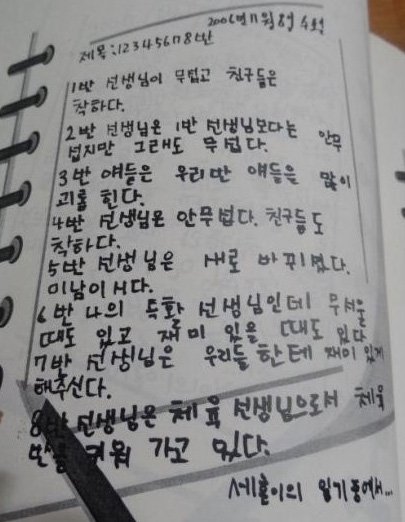 2006년 11월 8일 수요일
제목:12345678반
1반 선생님이 무럽고 친구들은
착하다.
2반 선생님은 1반 선생님보다는 안무
섭지만 그래도 무럽다.
3반 애들은 우리반 얘들은 많이
괴롭 힌다.
4반 선생님은 안무럽다. 친구들도
착하다.
5반 선생님은 새로 바뀌셨다.
미남이시다.
6반 나의 특활 선생님인데 무서울
때도 있고 재미 있을 때도 있다
7반 선생님은 우리들 한테 재미있게
해주신다.
8반 선생님은 체육 선생님으로서 체육
반을 키워 가고 있다.
세훈이의 일기 중에서...